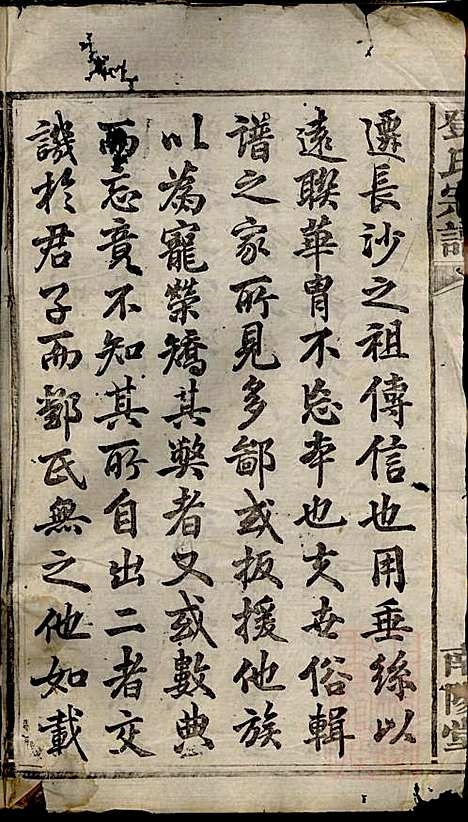 鄧氏宗譜
南陽堂
遷長沙之祖傳信也用垂絲以
遠聨華冑不忘本也夫世俗輯
譜之家所見多鄙或扳援他族
以為寵榮矯其獘者又或數典
而忘竟不知其所自出二者交
譏於君子而鄧氏無之他如載